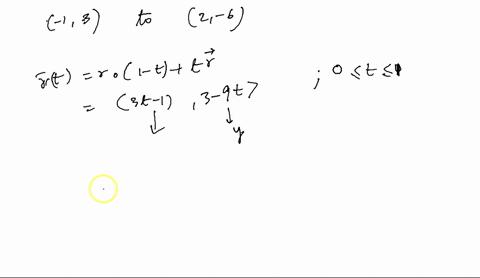 (-1, 3) to (2, -6)
r(t) = r₀(1-t) + t r⃗ ; 0 ≤ t ≤ 1
= (3t-1), 3-9t>
y